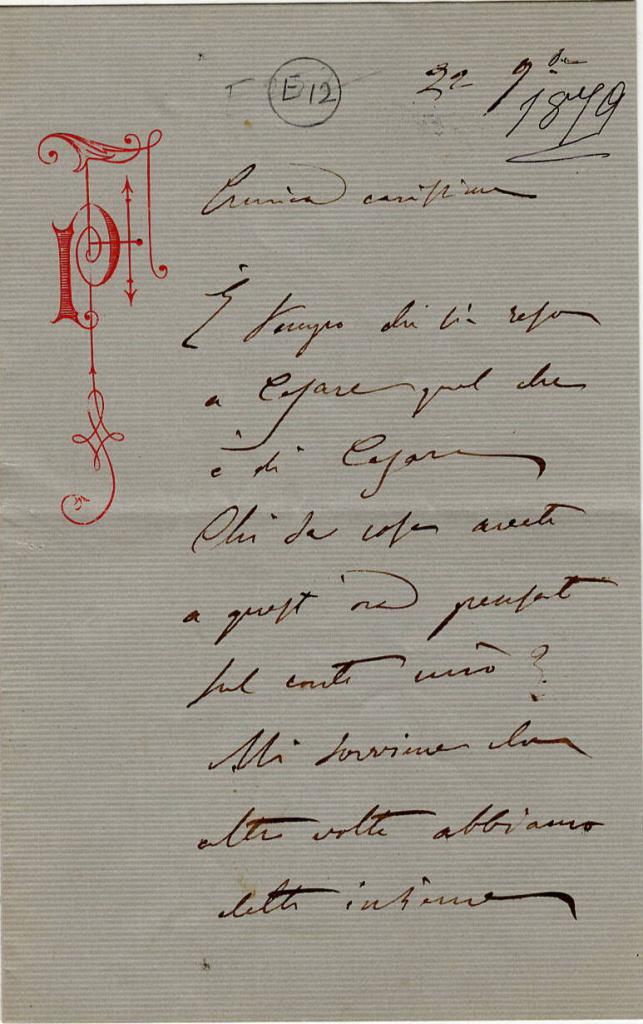 E12
22 9bre
1879
Amica carissima
È tempo che sia reso
a Cesare quel che
è di Cesare
Chi sa cosa avete
a quest'ora pensato
sul conto mio?
Mi sovviene che
altre volte abbiamo
detto insieme